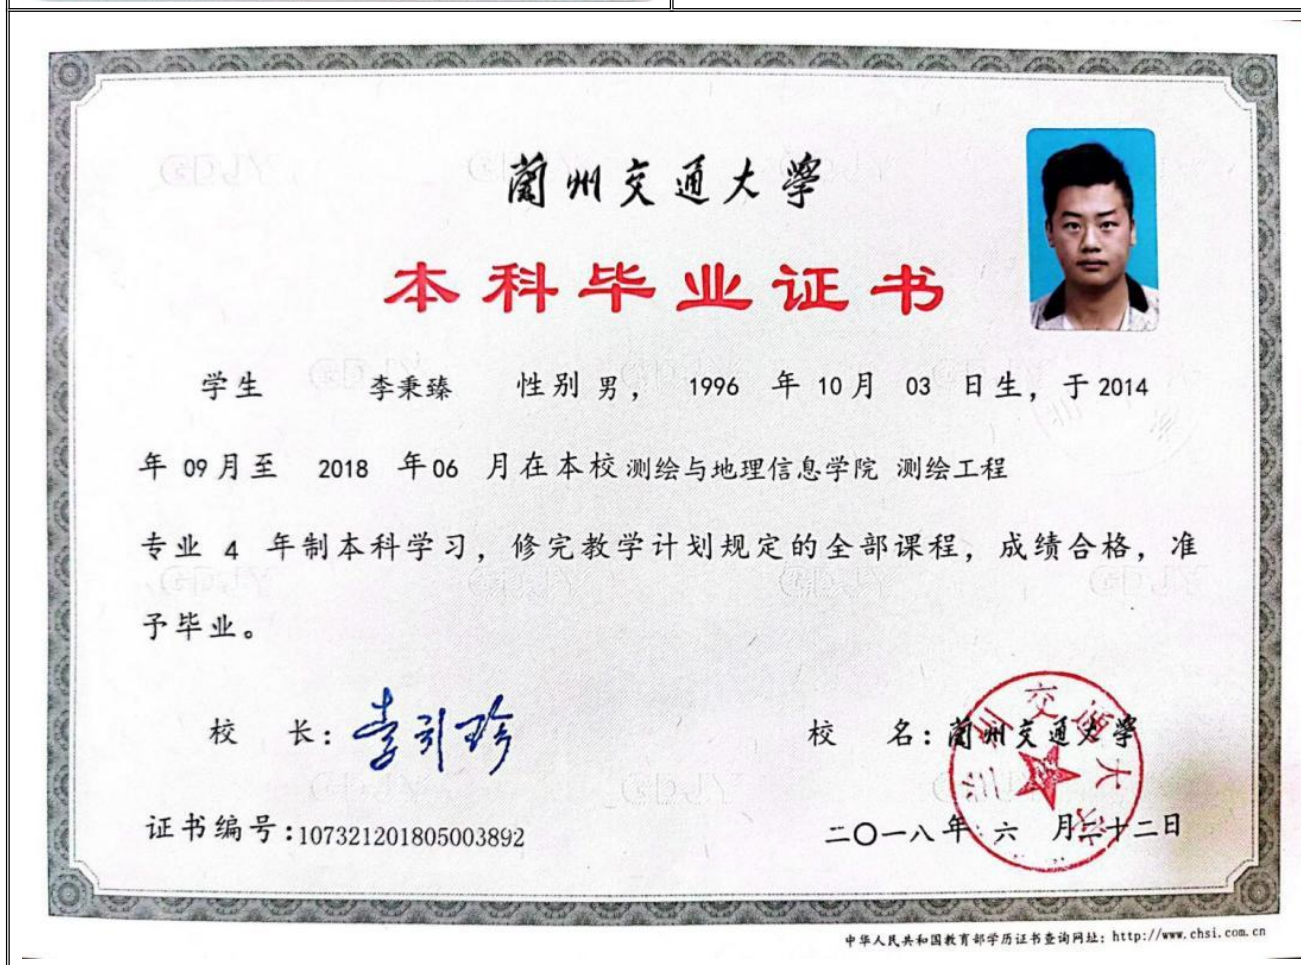 蘭州交通大學
本科毕业证书
学生 李秉臻 性别 男， 1996 年 10 月 03 日生，于 2014
年 09 月至 2018 年 06 月在本校 测绘与地理信息学院 测绘工程
专业 4 年制本科学习，修完教学计划规定的全部课程，成绩合格，准
予毕业。
校 长：李引珍
校 名：蘭州交通大學
证书编号：107321201805003892
二〇一八 年 六 月二十二日
中华人民共和国教育部学历证书查询网址：http://www.chsi.com.cn